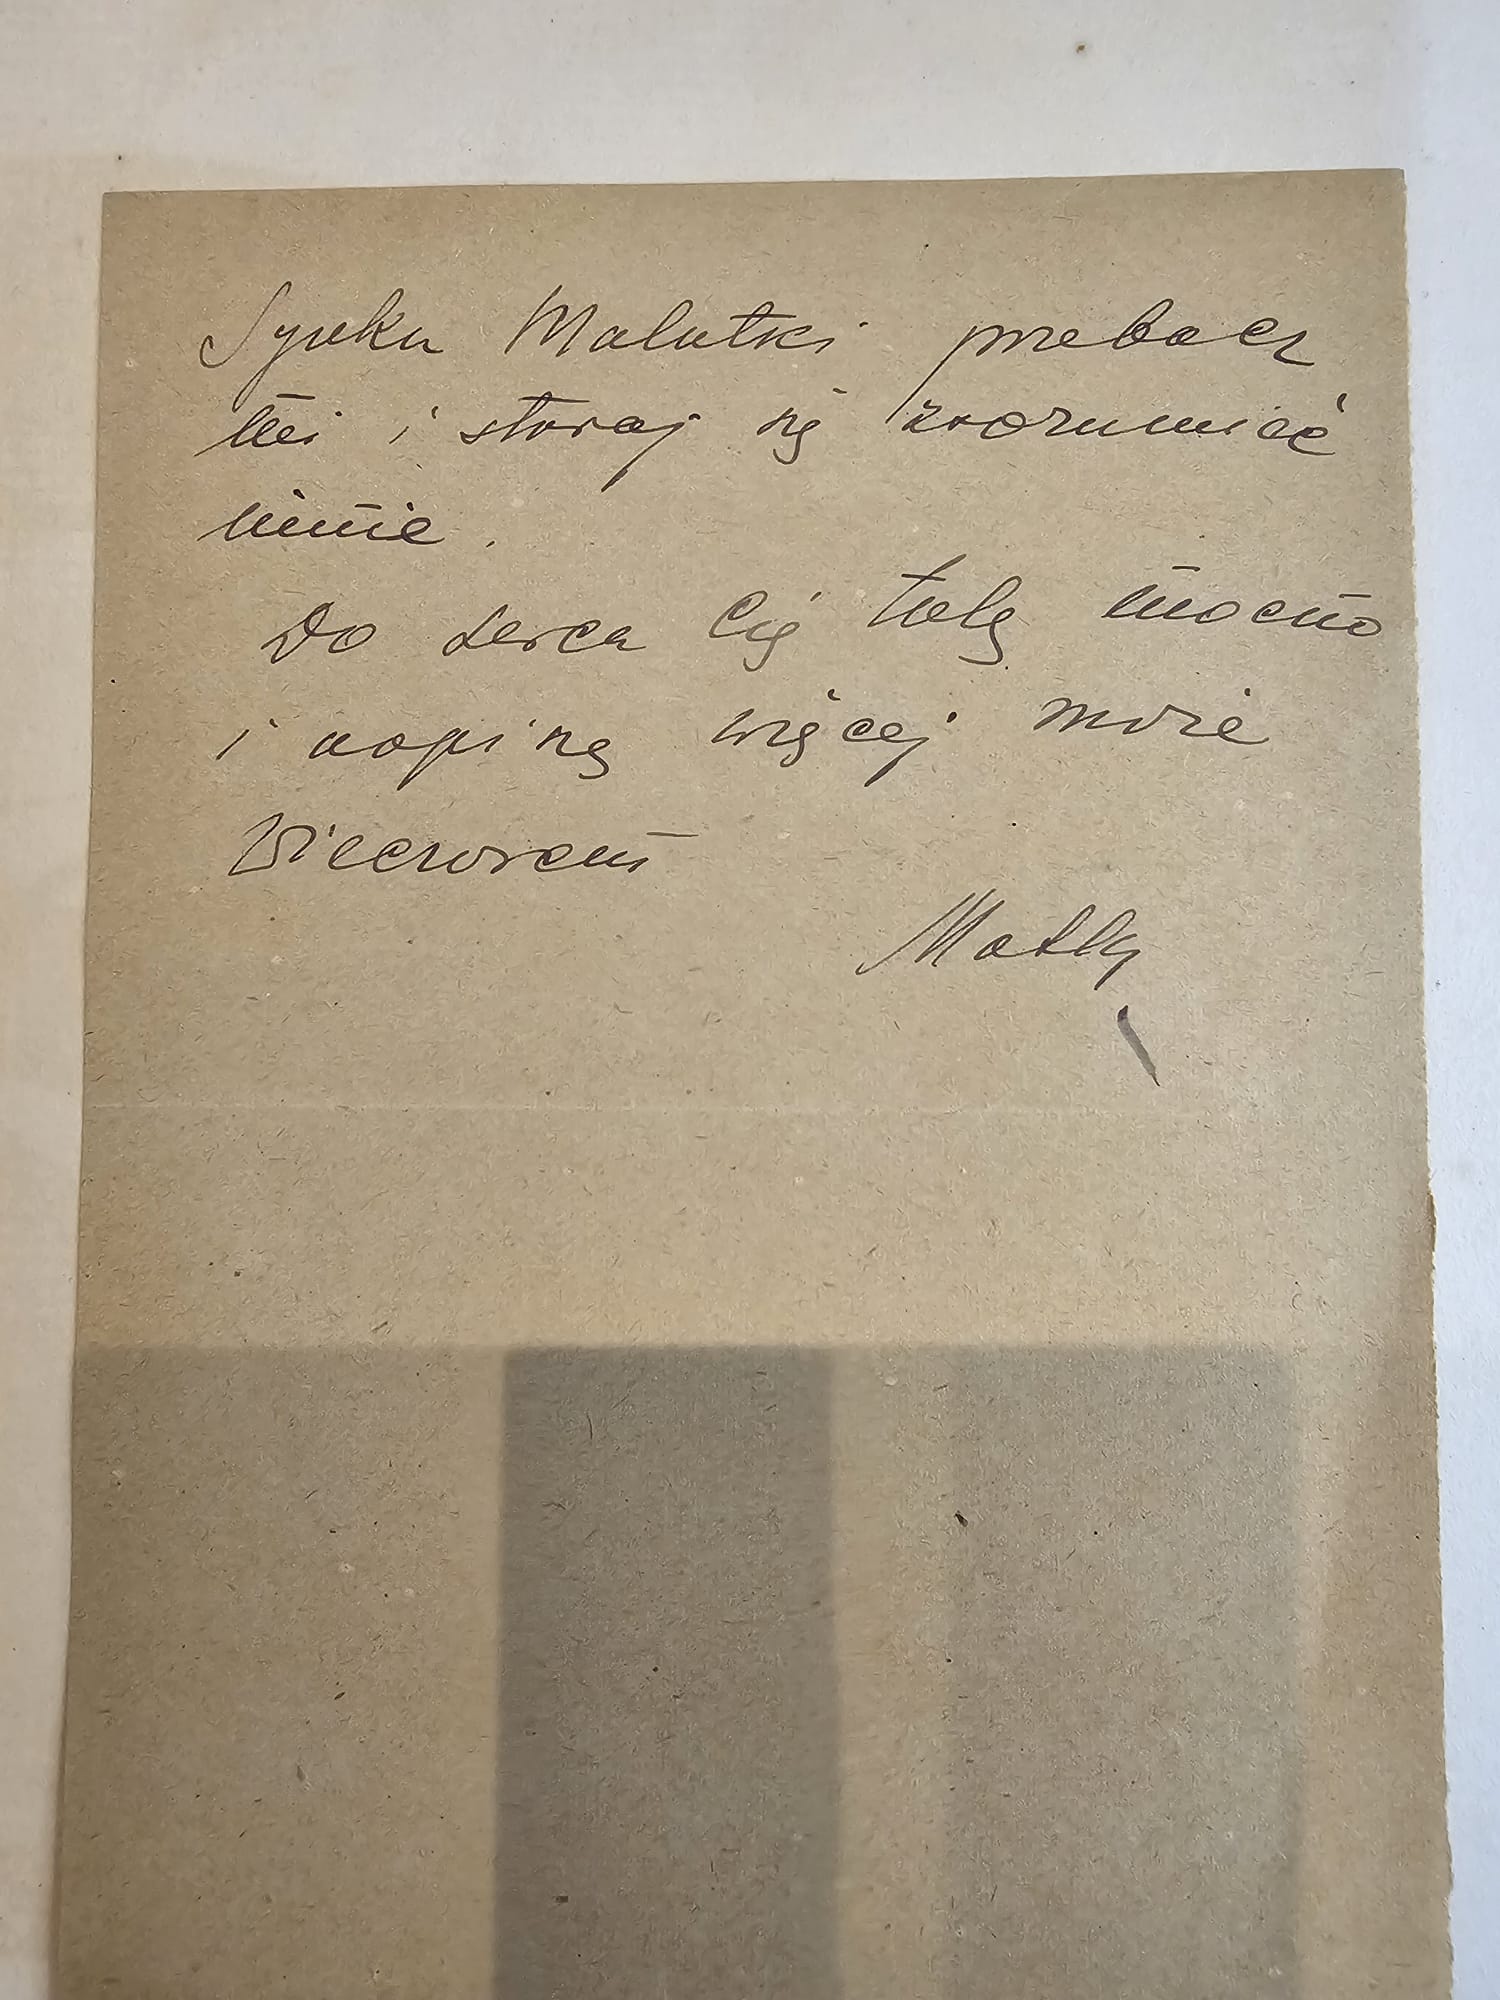 Synku Malutki przebacz
mi i staraj się zrozumieć
mnie.
Do serca Cię tulę mocno
i napiszę więcej może
wieczorem
Matka